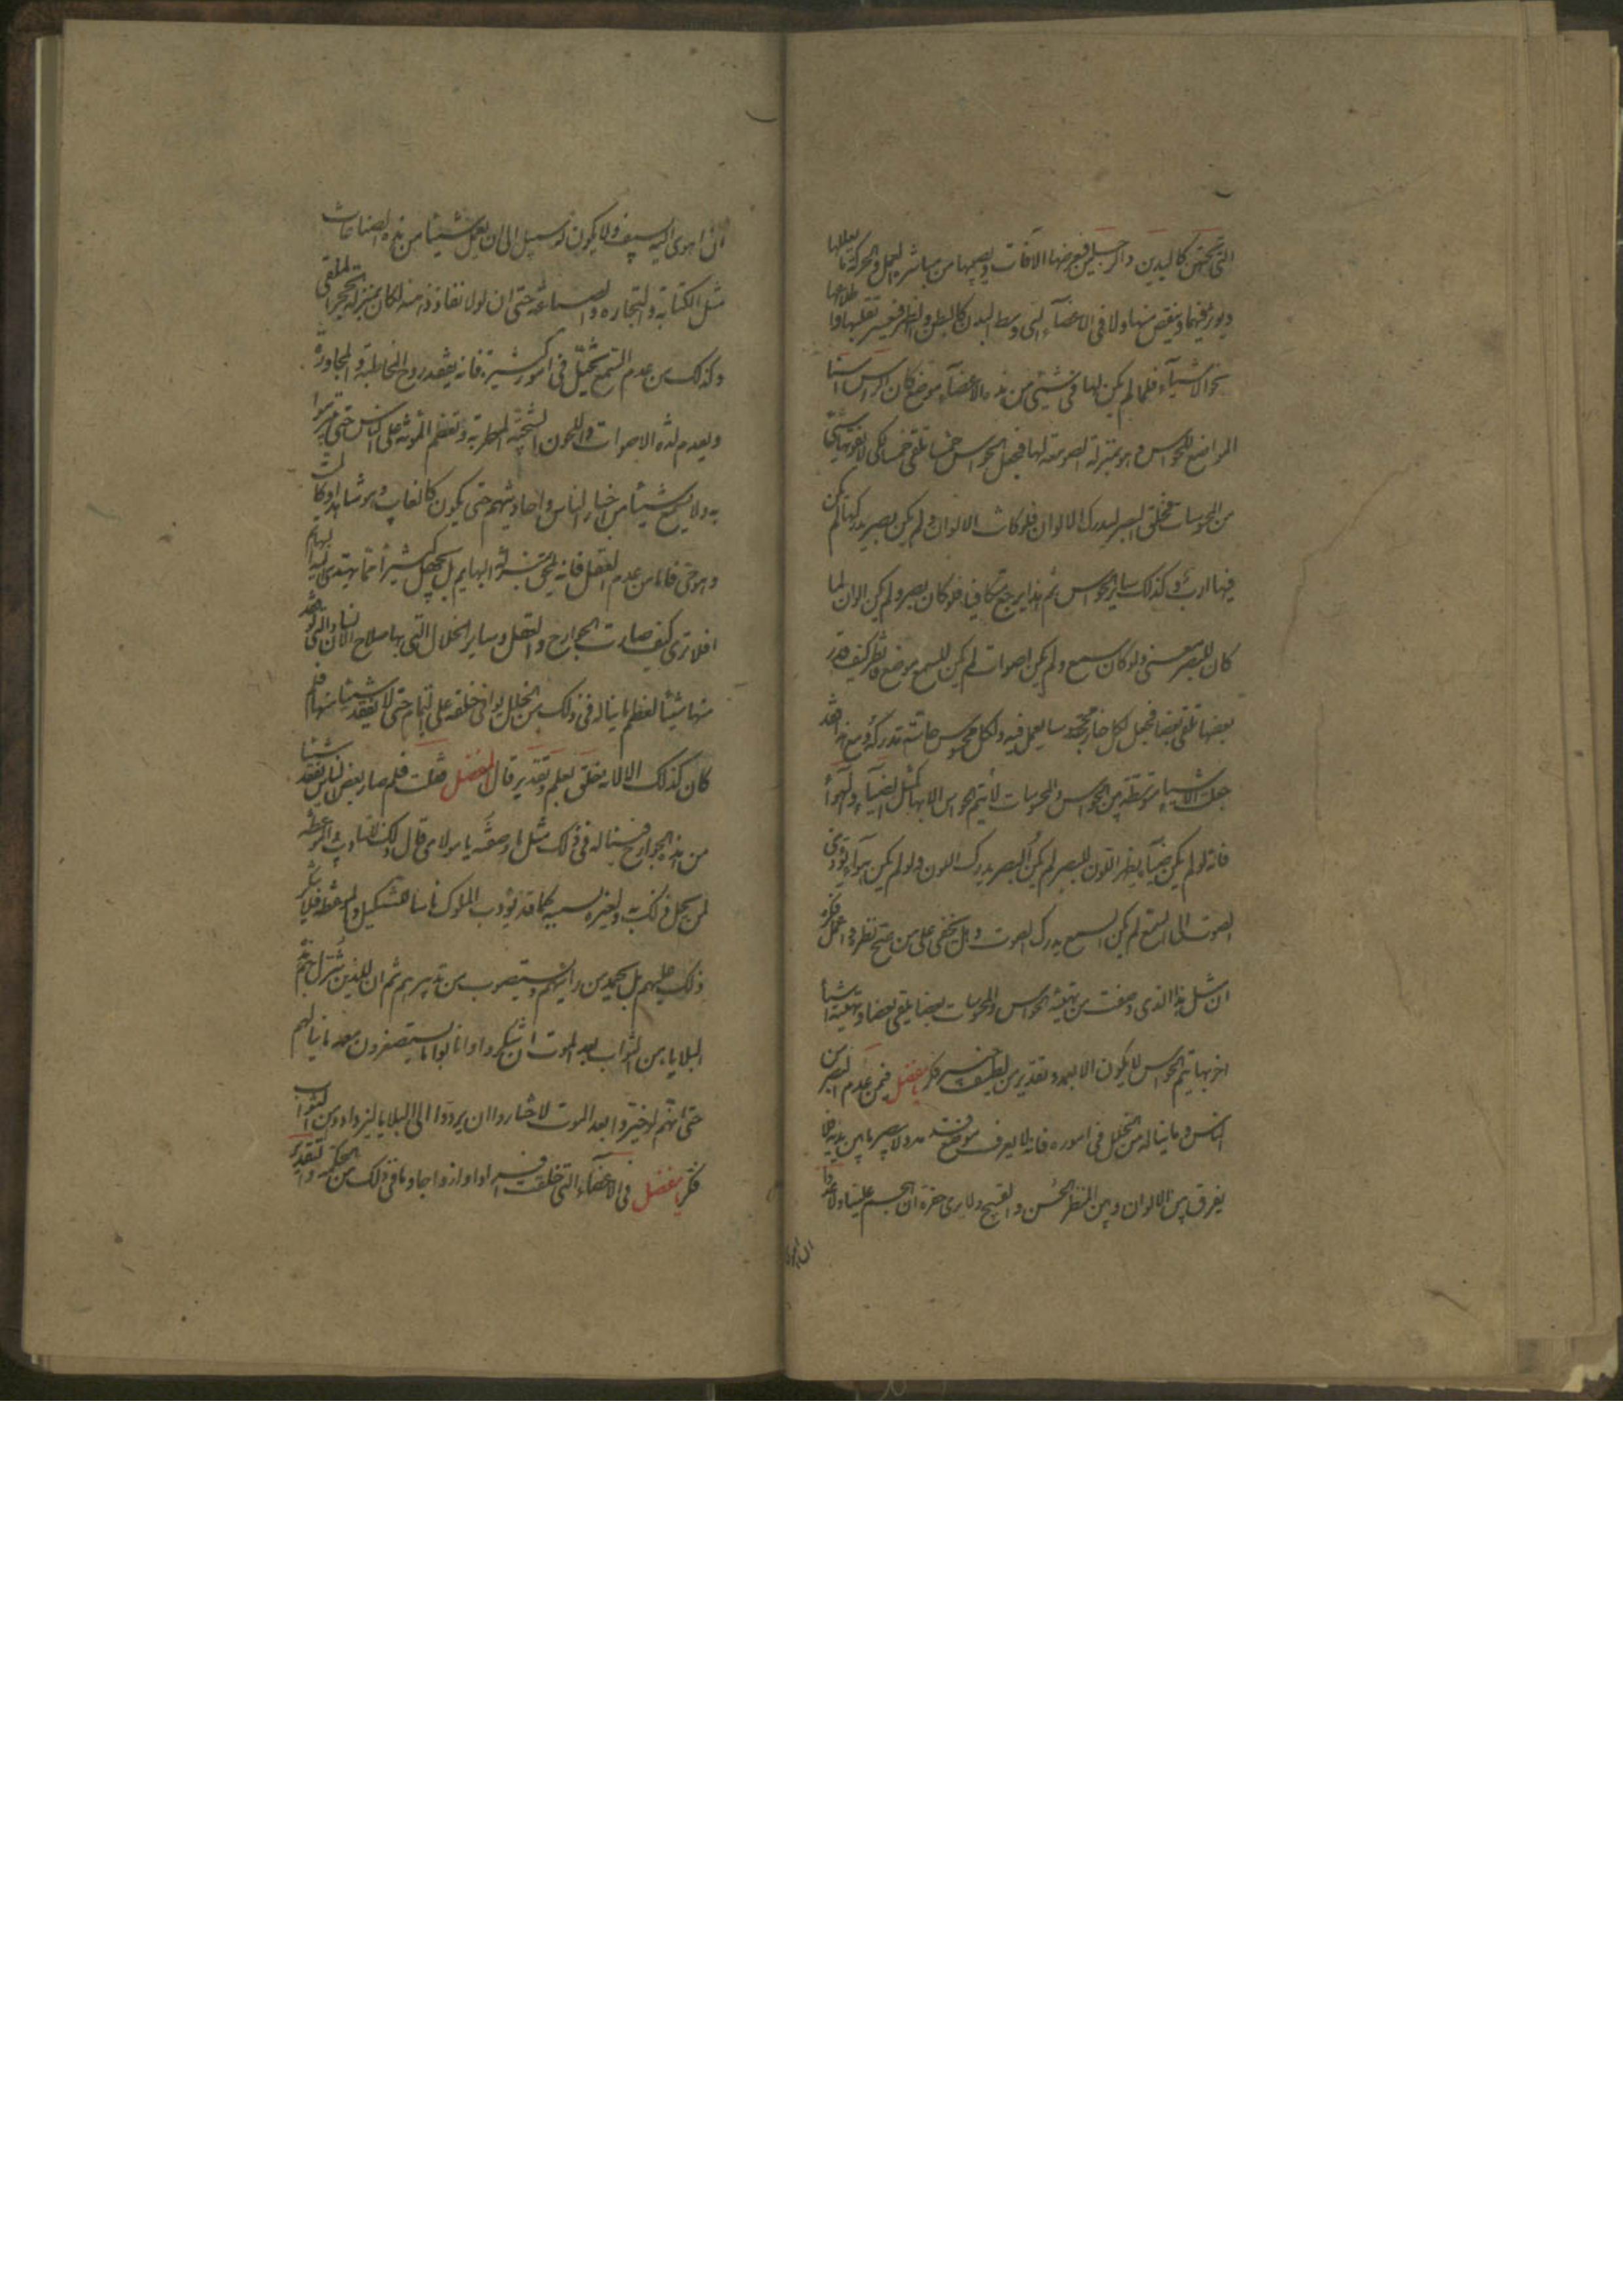 التی تحتهن کالیدین و الرجلین فتعرضها الآفات و یصیبها من مباشرة العمل و الحرکة ما یعللها
و یؤثر فیها و ینقص منها و لا فی الاعضآء التی وسط البدن کالبطن و الظهر فیعسر تقلبها و اطلاعها
نحو الاشیآء فلما لم یکن لها فی شیئی من هذه الاعضآء موضع کان الراس اسنا
المواضع للحواس و هو بمنزلة الصومعة لها فجعل الحواس خمسا تلقی خمسا لکی لا یفوتها شیئی
من المحسوسات فخلق البصر لیدرک الالوان فلو کانت الالوان و لم یکن بصر یدرکها لم یکن
فیها ارب و کذلک سایر الحواس ثم هذا یرجع متکافیا فلو کان بصر و لم یکن الوان لما
کان للبصر معنی و لو کان سمع و لم یکن اصوات لم یکن للسمع موضع فانظر کیف قدر
بعضها تلقی بعضا فجعل لکل حاسة محسوسا یعمل فیه و لکل محسوس حاسّة تدرکه و مع هذا فقد
جعلت الاشیاء متوسطة بین الحواس و المحسوسات لا یتم الحواس الا بها کمثل الضیآء و الهوآء
فانه لو لم یکن ضیآء یظهر اللون للبصر لم یکن البصر یدرک اللون و لو لم یکن هوآء یؤدی
الصوت الی السمع لم یکن السمع یدرک الصوت و هل یخفی علی من صح نظره و اعمل فکره
ان مثل هذا الذی وصفت من تهیئة الحواس و المحسوسات بعضها یلقی بعضا و تهیئة اشیأ
اخر بها یتم الحواس لا یکون الا بعمد و تقدیر من لطیف خبیر فکر یا مفضل فیمن عدم البصر من
الناس و ما یناله من الخلل فی اموره فانه لا یعرف موضع قدمه و لا یبصر ما بین یدیه فلا
یفرق بین الالوان و بین المنظر الحسن و القبیح و لا یری حفرة ان هجم علیها و لا عدوا
ان اهوی الیه بسیف و لا یکون له سبیل الی ان یعمل شیئا من هذه الصناعات
مثل الکتابة و التجارة و الصیاغة حتی ان لولا نفاذ ذهنه لکان بمنزلة الحجر الملقی
و کذلک من عدم السمع یختلّ فی امور کثیرة فانه یفقد روح المخاطبة و المحاورة
و یعدم لذة الاصوات و اللحون الشجیة المطربة و تعظم المؤنة علی الناس حتی یتبرموا
به و لا یسمع شیئا من اخبار الناس و احادیثهم حتی یکون کالغایب و هو شاهد او کالمیت
و هو حی فاما من عدم العقل فانه یلحق بمنزلة البهایم بل یجهل کثیرا مما یهتدی الیه البهایم
افلا تری کیف صارت الجوارح و العقل و سایر الخلال التی بها صلاح الانسان و التی لو فقد
منها شیئا لعظم ما یناله فی ذلک من الخلل یوافی خلقه علی التمام حتی لا یفقد شیئا منها فلم
کان کذلک الا لانه خلق بعلم و تقدیر قال المفضل فقلت فلم صار بعض الناس یفقد شیئا
من هذه الجوارح فیناله فی ذلک مثل ما وصفته یا مولای قال ذلک للتادیب و الموعظة
لمن یحل ذلک به و لغیره بسببه کما قد یؤدب الملوک الناس للتنکیل و الموعظة فلا ینکر
ذلک علیهم بل یحمد من رایهم و یستصوب من تدبیرهم ثم ان للذین تنزل بهم هذه
البلایا من الثواب بعد الموت ان شکروا و انابوا ما یستصغرون معه ما ینالهم
حتی انهم لو خیروا بعد الموت لاختاروا ان یردوا الی البلایا لیزدادوا من الثواب
فکر یا مفضل فی الاعضآء التی خلقت افرادا و ازواجا و ما فی ذلک من الحکمة و التقدیر